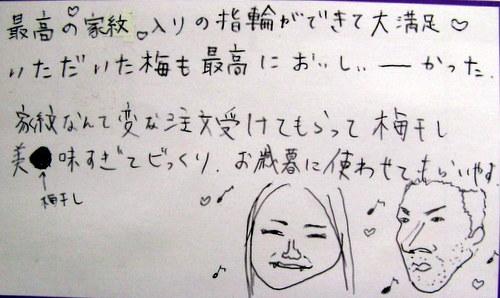 最高の家紋入りの指輪ができて大満足♡
いただいた梅も最高においしぃーかった
家紋なんて変な注文受けてもらって梅干し
美●味すぎてビックリ. お歳暮に使わせてもらいやす
↑
梅干し